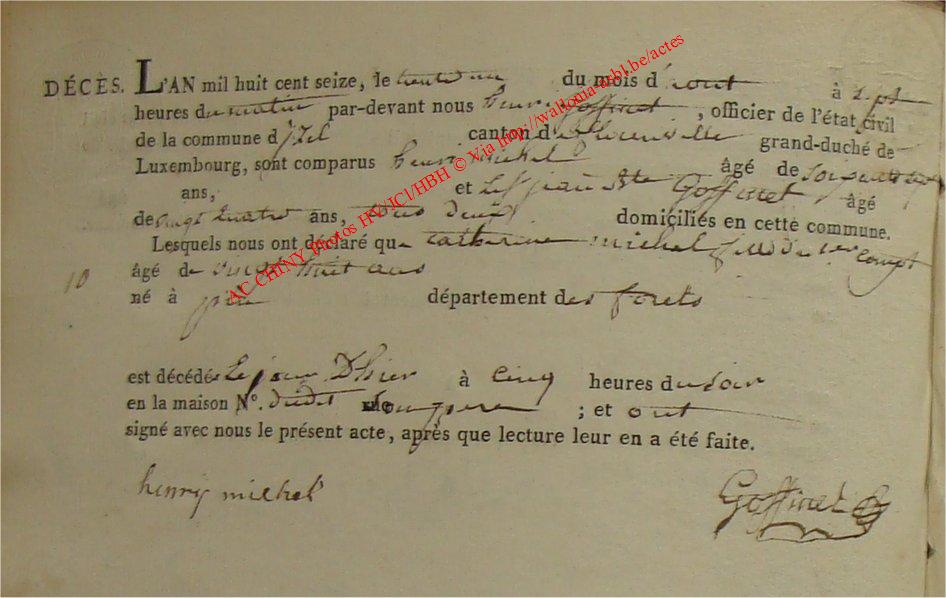 DÉCÈS. L'AN mil huit cent seize, le trente un du mois d'aout à sept
heures du matin par-devant nous henri Goffinet, officier de l'état civil
de la commune d'izel canton de florenville grand-duché de
Luxembourg, sont comparus henri michel âgé de soixante
ans, et Le Sr jean Bte Goffinet âgé
de vingt quatre ans, tous deux domiciliés en cette commune.
Lesquels nous ont déclaré que catherine michel fille du 1er compt
10 âgé de vingt huit ans
né à pin département des forets
est décédée Le jour D'hier à cinq heures du soir
en la maison N°. dudit son pere ; et ont
signé avec nous le présent acte, après que lecture leur en a été faite.
henry michel Goffinet
AC CHINY Photos HV/JCl/HBH © Via http://wallonia-asbl.be/actes